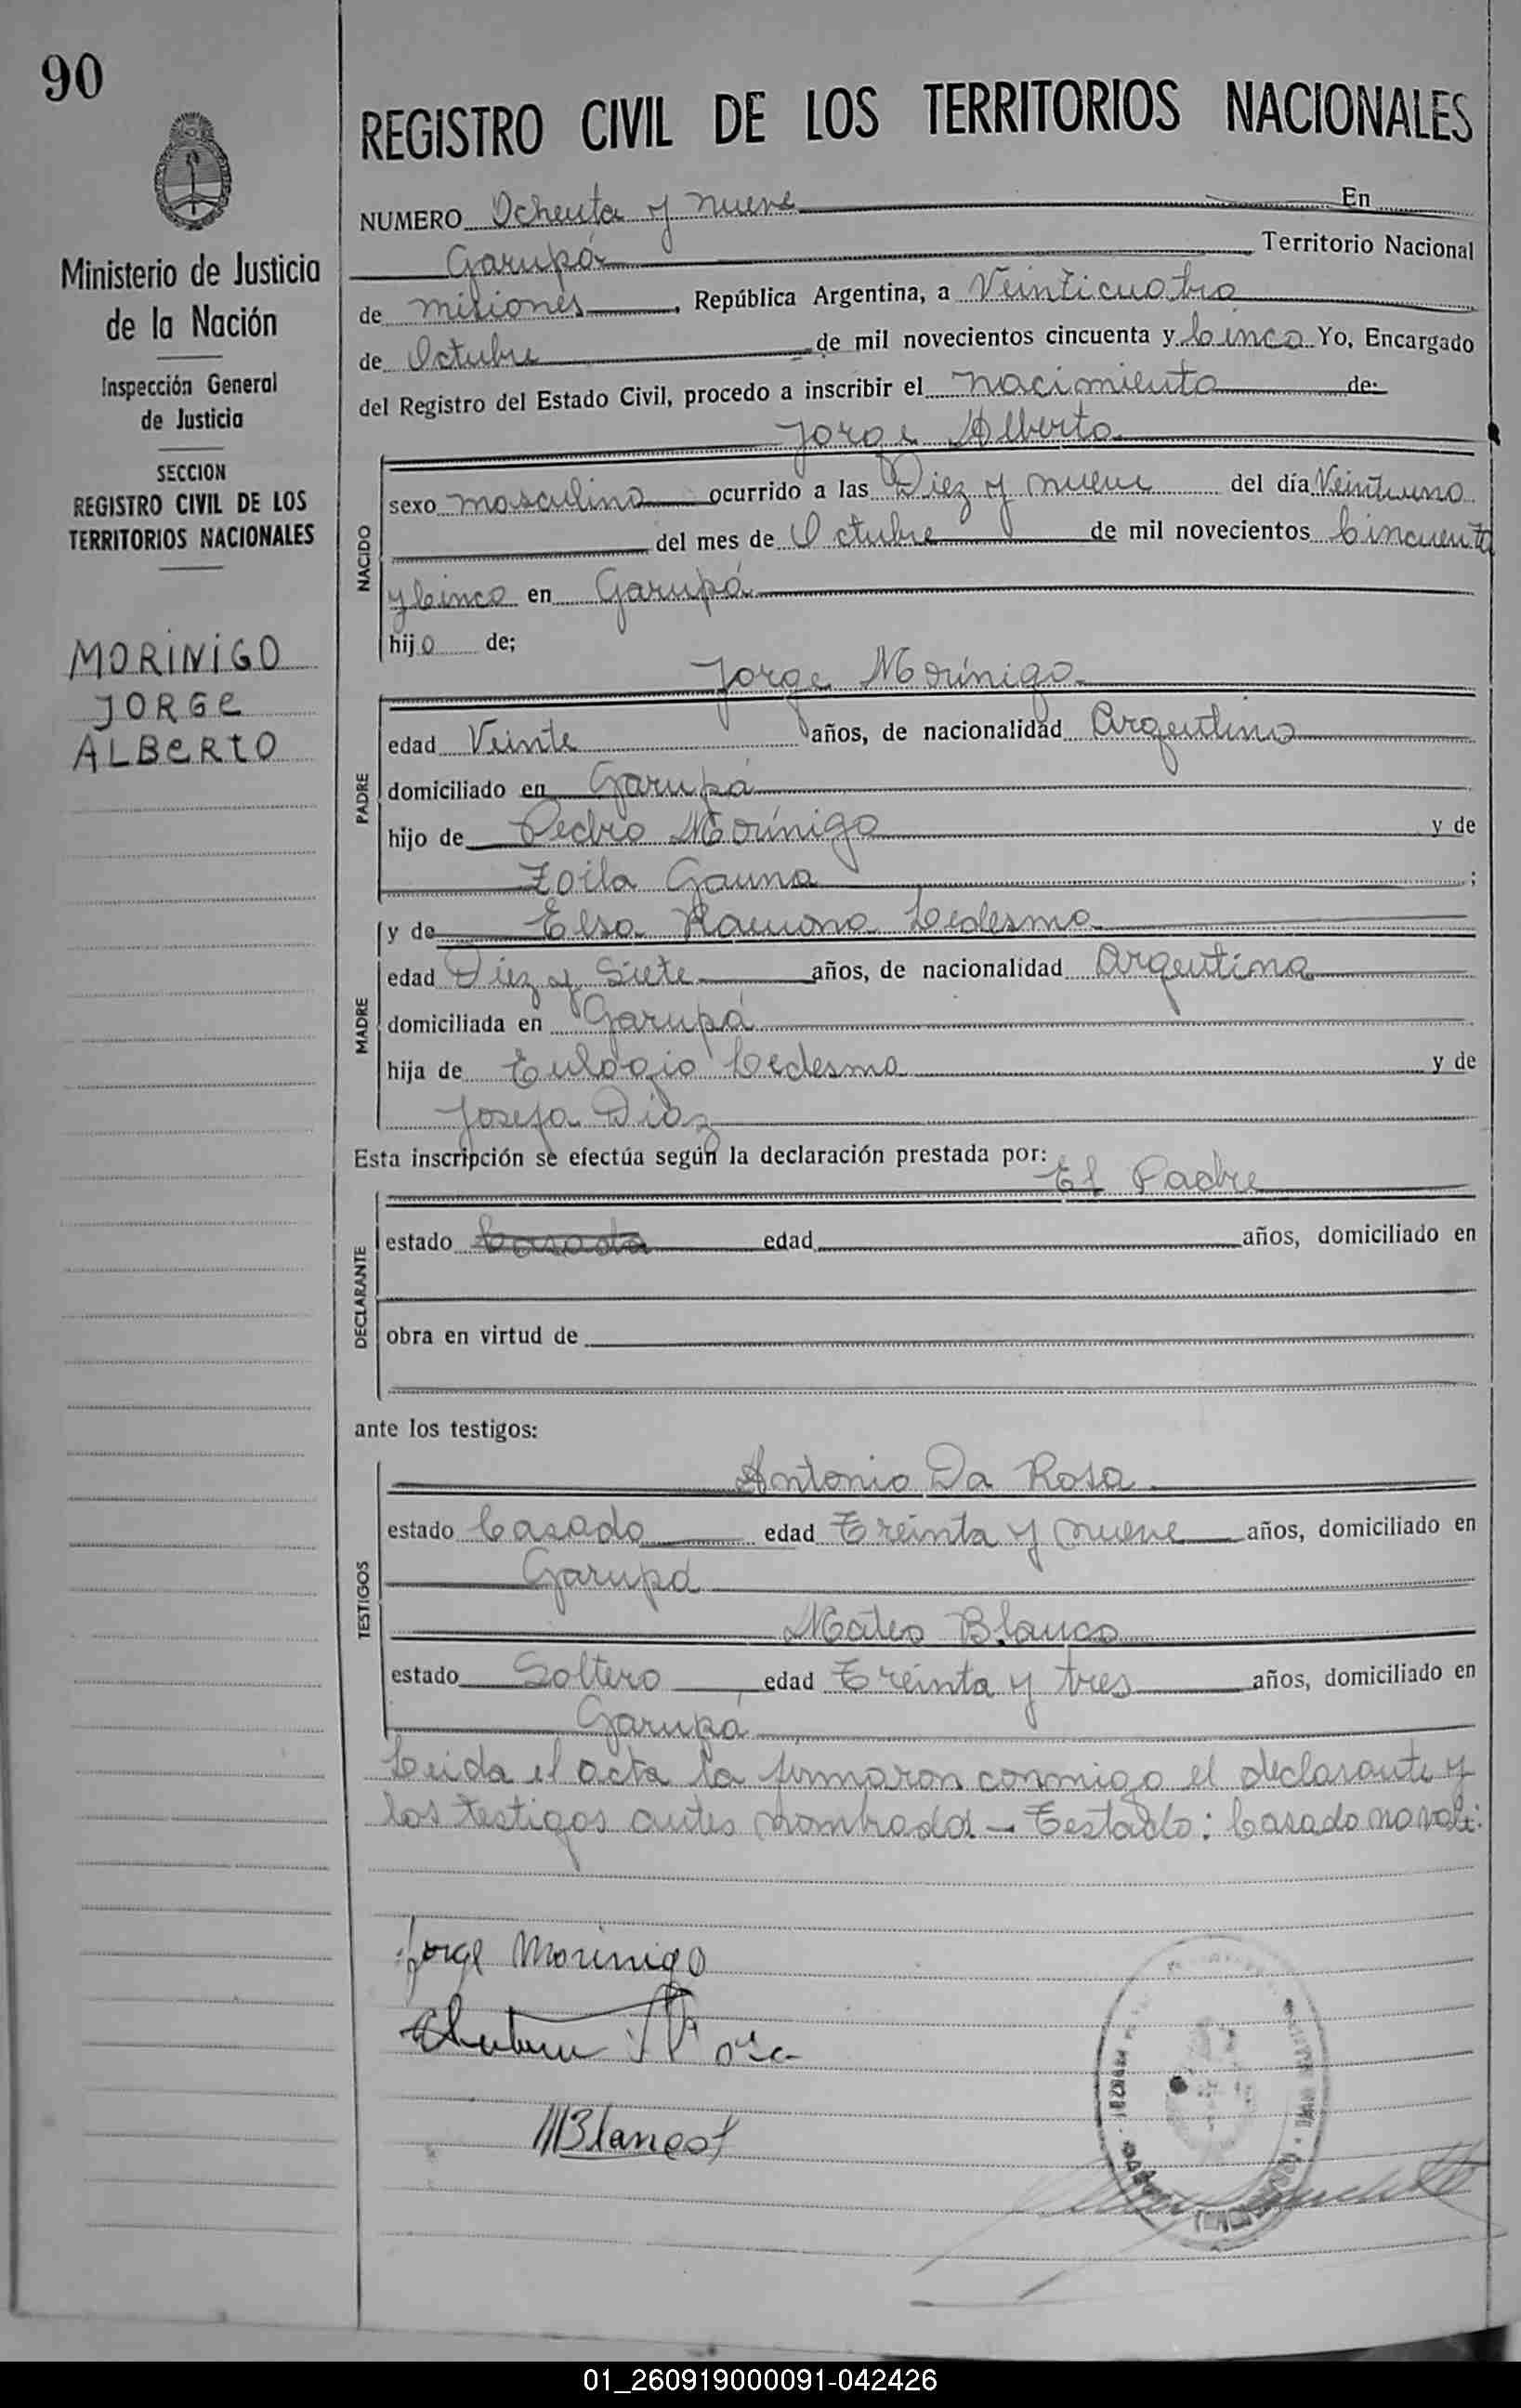 90
Ministerio de Justicia
de la Nación
Inspección General
de Justicia
SECCION
REGISTRO CIVIL DE LOS
TERRITORIOS NACIONALES
MORINIGO
JORGE
ALBERTO
REGISTRO CIVIL DE LOS TERRITORIOS NACIONALES
NUMERO Ochenta y nueve En
Garupá Territorio Nacional
de misiones, República Argentina, a Veinticuatro
de Octubre de mil novecientos cincuenta y Cinco Yo, Encargado
del Registro del Estado Civil, procedo a inscribir el nacimiento de:
Jorge Alberto
NACIDO
sexo masculino ocurrido a las Diez y nueve del día Veintiuno
del mes de Octubre de mil novecientos Cincuenta
y Cinco en Garupá
hijo de;
Jorge Morínigo
PADRE
edad Veinte años, de nacionalidad Argentino
domiciliado en Garupá
hijo de Pedro Morínigo y de
Zoila Gauna ;
MADRE
y de Elsa Ramona Ledesma
edad Diez y Siete años, de nacionalidad Argentina
domiciliada en Garupá
hija de Eulogio Ledesma y de
Josefa Diaz
Esta inscripción se efectúa según la declaración prestada por:
El Padre
DECLARANTE
estado Casado edad años, domiciliado en
obra en virtud de
ante los testigos:
TESTIGOS
Antonio Da Rosa
estado Casado edad Treinta y nueve años, domiciliado en
Garupá
Mateo Blanco
estado Soltero edad Treinta y tres años, domiciliado en
Garupá
Leida el acta la firmaron conmigo el declarante y
los testigos antes nombrada – Testado: Casado no vale:
Jorge Morinigo
MBlanco
01_260919000091-042426